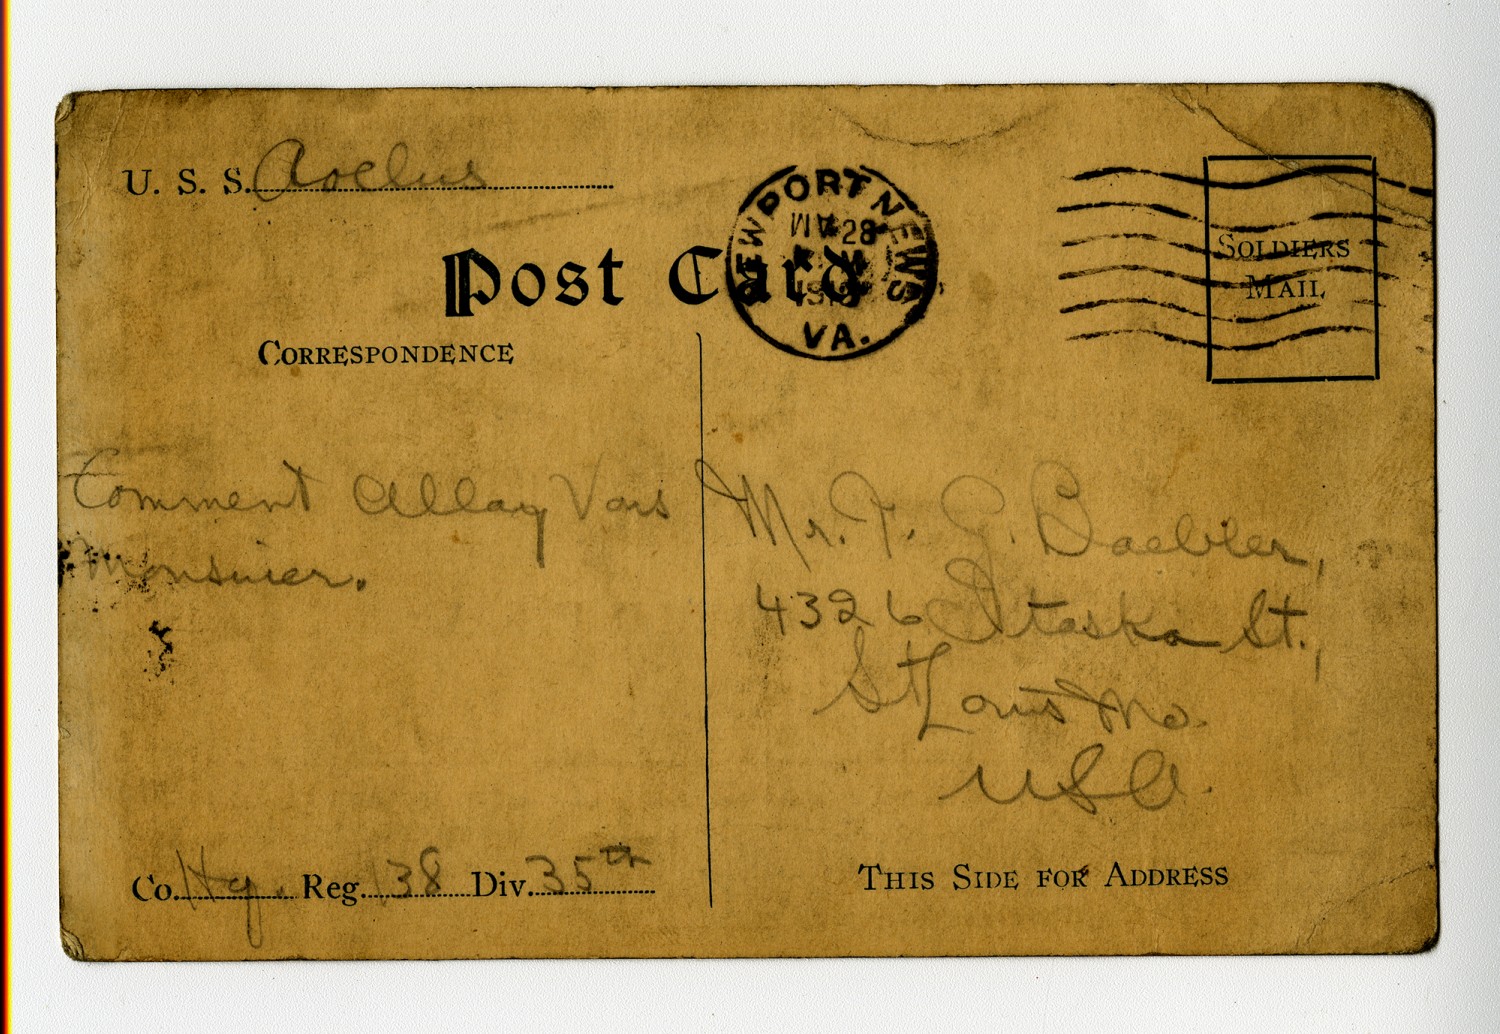 U. S. S. Aoelus
NEWPORT NEWS
28
VA.
SOLDIERS
MAIL
Post Card
CORRESPONDENCE
Comment Allay Vous
Monsuier.
Mr. F. G. Baebler,
4326 Itaska St.,
St Louis Mo.
USA.
Co. Hq. Reg. 138 Div. 35th
THIS SIDE FOR ADDRESS